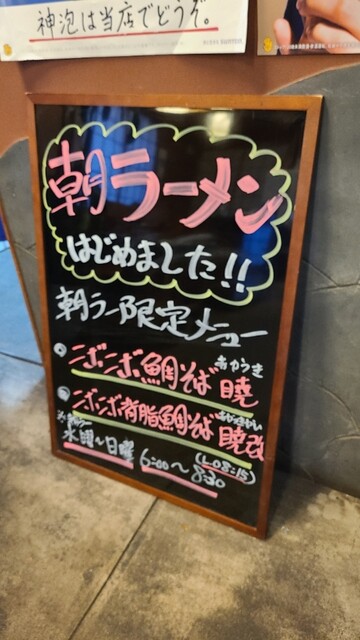 神泡は当店でどうぞ。
朝ラーメン
はじめました!!
朝ラー限定メニュー
ニボニボ鯛そば 暁
あかつき
ニボニボ背脂鯛そば 暁改
水曜〜日曜 6:00〜8:30
(L.O8:15)